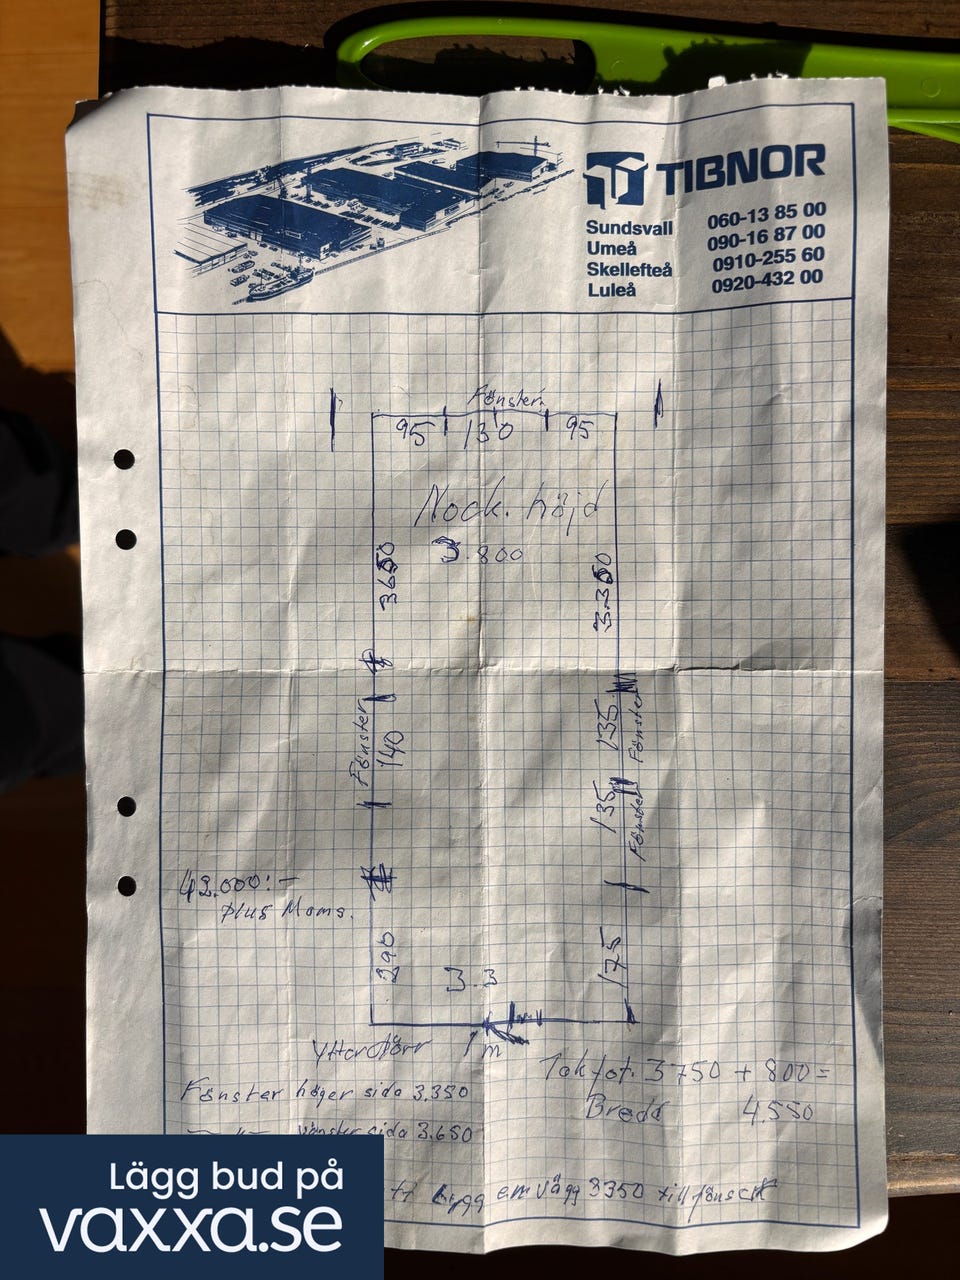 TIBNOR
Sundsvall 060-13 85 00
Umeå 090-16 87 00
Skellefteå 0910-255 60
Luleå 0920-432 00
Fönster
95 130 95
Nock. höjd
3.800
3650
3.350
Fönster
140
135
Fönster
135
Fönster
42.000:-
plus Moms.
290
175
3.3
Ytterdörr 1 m
Takfot. 3750 + 800 =
Bredd 4.550
Fönster höger sida 3.350
—"— vänster sida 3.650
bygg em vägg 3350 till
Lägg bud på
vaxxa.se